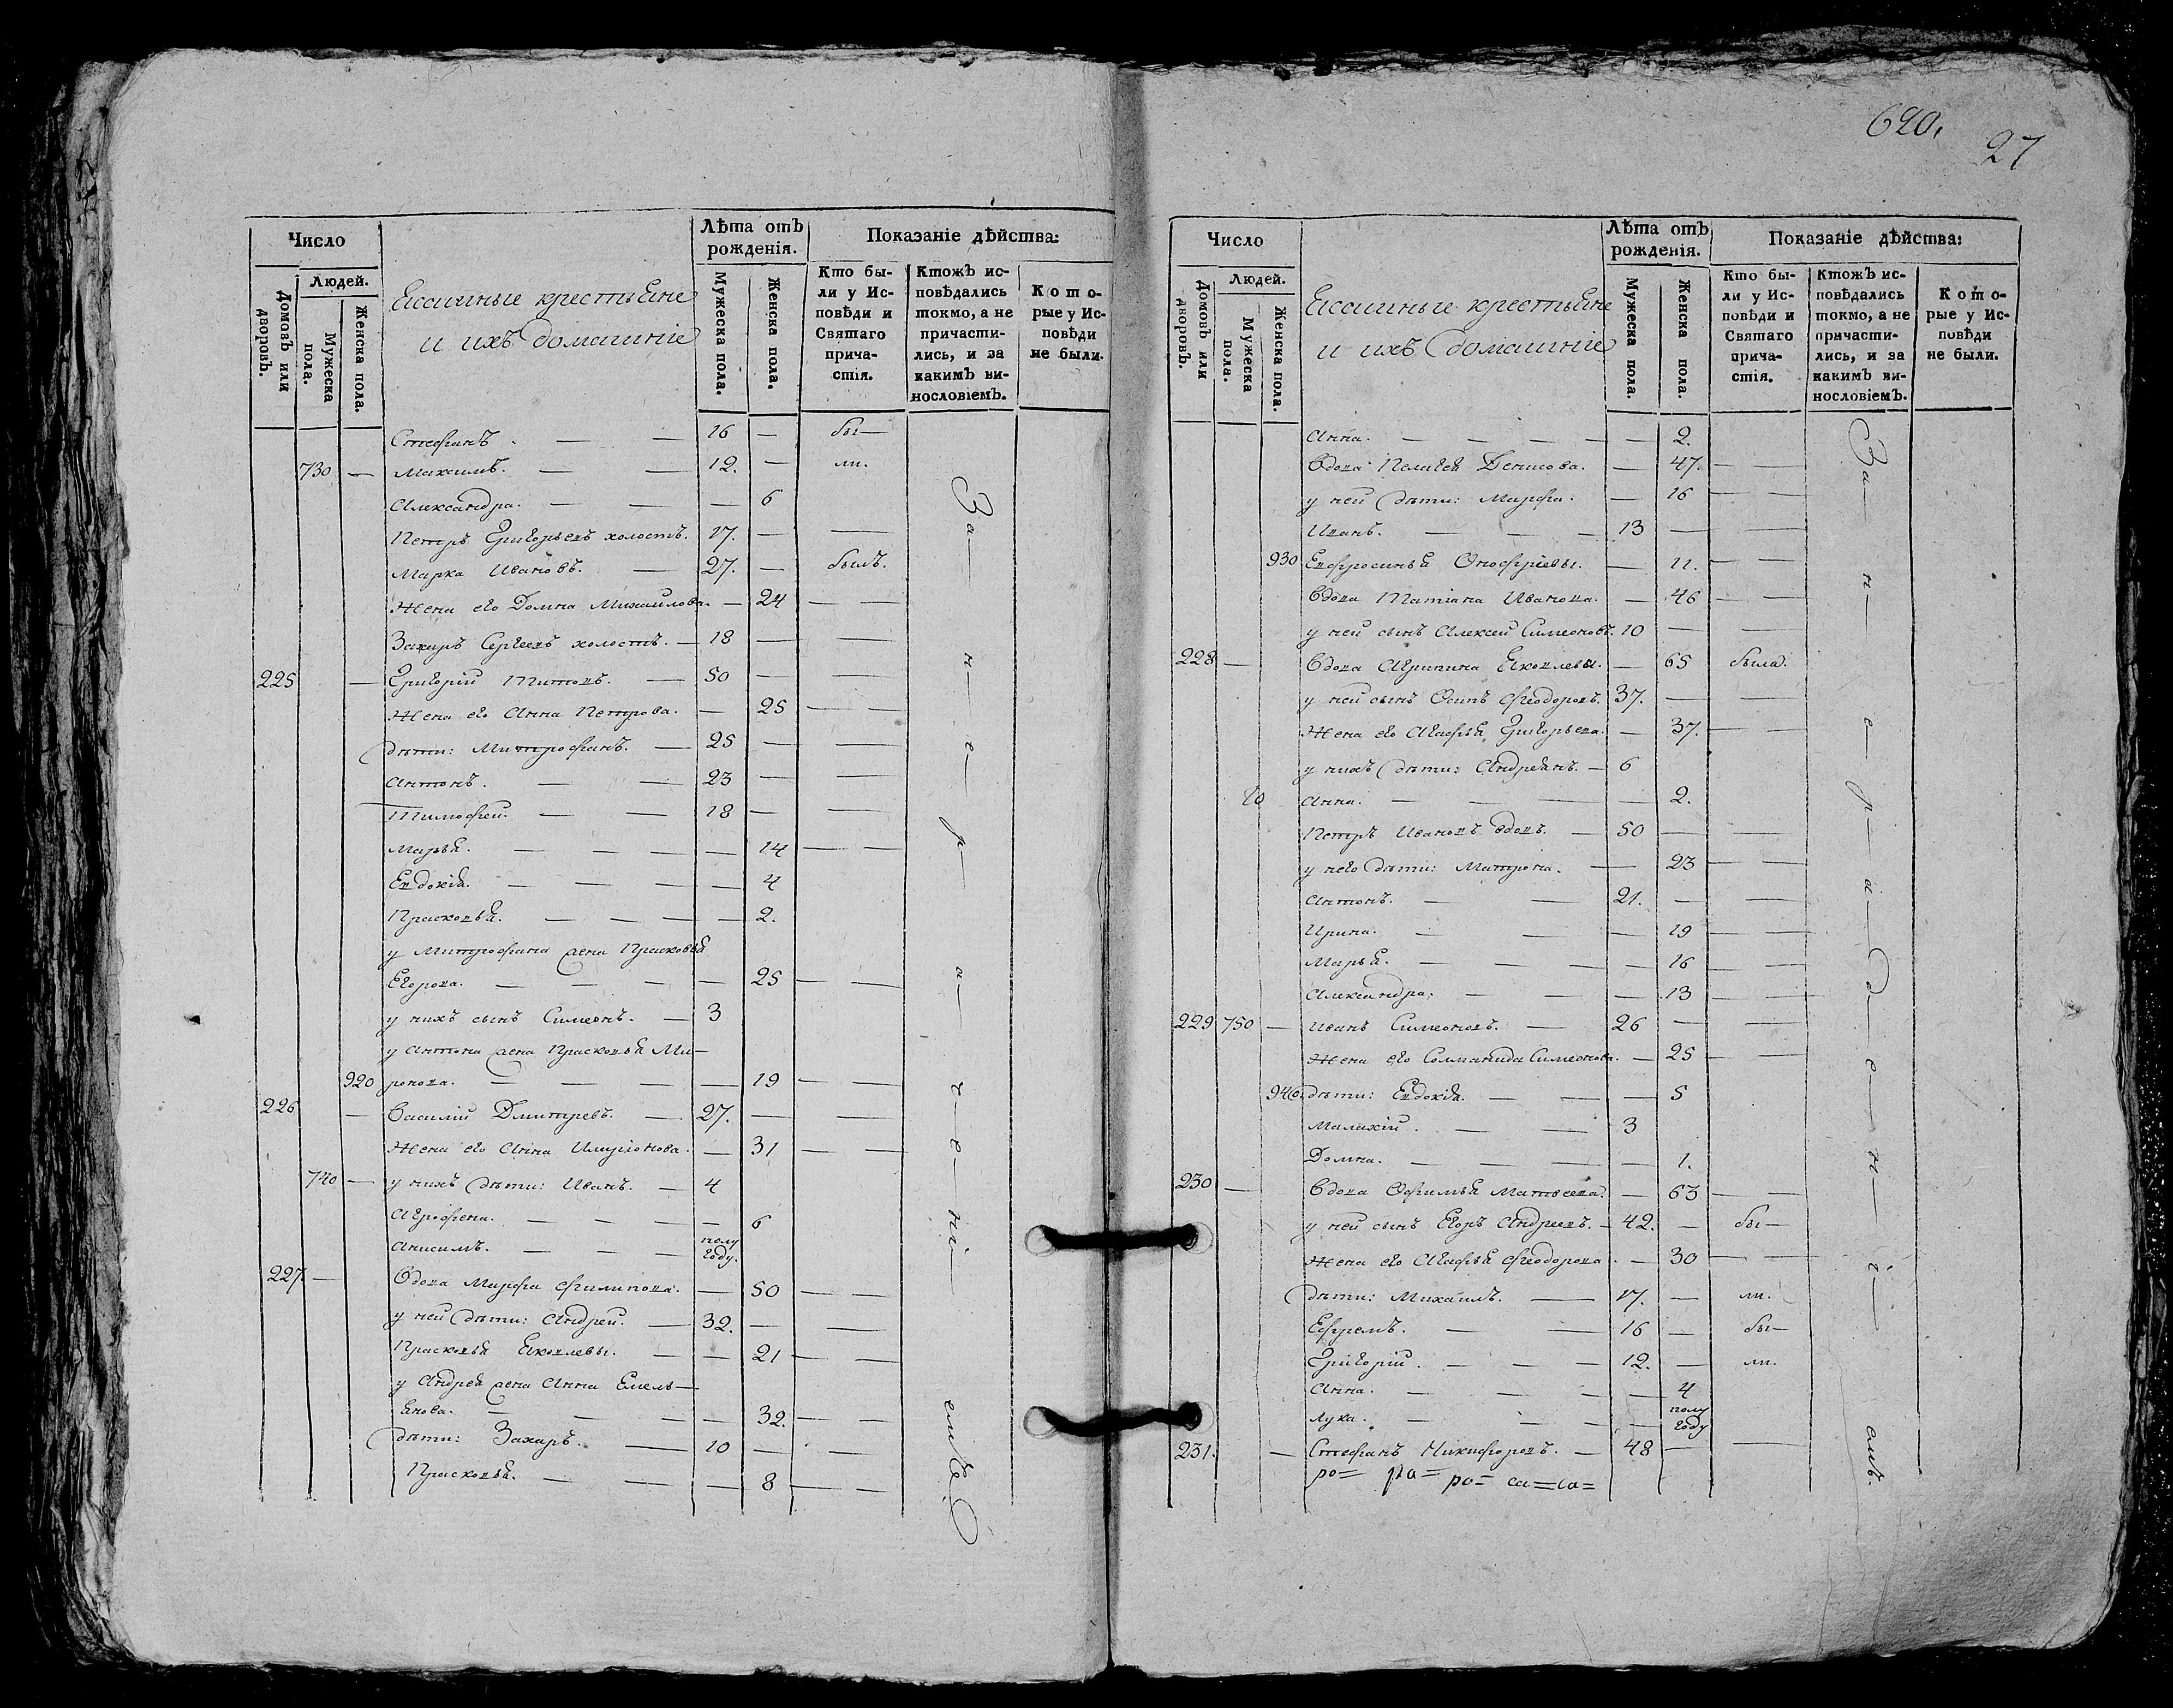 Число
Людей.
Домовъ или дворовъ.
Мужеска пола.
Женска пола.
Ясашные крестьяне
и ихъ домашніе
Лѣта отъ рожденія.
Мужеска пола.
Женска пола.
Показаніе дѣйства:
Кто были у Исповѣди и Святаго причастія.
Ктожъ исповѣдались токмо, а не причастились, и за какимъ винословіемъ.
Которые у Исповѣди не были.
Стефанъ. — — 16 — бы—
730 — Максимъ. — — 12. — ли.
Александра. — — — 6
Петръ Григорьевъ холостъ. 17. — —
Марка Ивановъ. — 27. — былъ.
Жена его Домна Михаилова. — 24 — —
Захаръ Сергеевъ холостъ. — 18 — —
225 — Григорій Титовъ. — 50 — —
Жена его Анна Петрова. — 25 — —
дѣти: Митрофанъ. — 25 — —
Антонъ. — — 23 — —
Тимофей. — — 18 — —
Марья. — — — — 14 — —
Евдокія. — — — — 4
Прасковья. — — — — 2.
у Митрофана жена Прасковья
Егорова. — — — — 25 — —
у нихъ сынъ Симеонъ. — 3
у Антона жена Прасковья Ми—
920 ронова. — — — — 19 — —
226 — Василій Дмитревъ. — 27. — —
Жена его Анна Иларіонова. — 31 — —
740 — у нихъ дѣти: Иванъ. — 4
Агрофена. — — — — 6
Анисимъ. — — — полу году.
227. — Вдова Марфа Филипова. — 50 — —
у ней дѣти: Андрей. — 32. — —
Прасковья Яковлевы. — — 21 — —
у Андрея жена Анна Емель—
янова. — — — — 32. — —
дѣти: Захаръ. — 10 — —
Прасковья. — — — 8 — —
За—н—е—р—а—ч—е—ні—емъ
620.
27
Число
Людей.
Домовъ или дворовъ.
Мужеска пола.
Женска пола.
Ясашные крестьяне
и ихъ домашніе
Лѣта отъ рожденія.
Мужеска пола.
Женска пола.
Показаніе дѣйства:
Кто были у Исповѣди и Святаго причастія.
Ктожъ исповѣдались токмо, а не причастились, и за какимъ винословіемъ.
Которые у Исповѣди не были.
Анна. — — — — — 2.
Вдова Пелагея Денисова. — 47. — —
у ней дѣти: Марфа. — 16 — —
Иванъ. — — — 13 — —
930 Евфросинья Онофріевы. — 11. — —
Вдова Татіана Иванова. — 46 — —
у ней сынъ Алексей Симеоновъ. 10 — —
228 — Вдова Агрипина Яковлева. — 65 была.
у ней сынъ Осипъ Феодоровъ. 37. — —
Жена его Агафья Григорьева. — 37. — —
у нихъ дѣти: Андреянъ. — 6
Анна. — — — — 2.
Петръ Ивановъ вдовъ. — 50 — —
у него дѣти: Матрона. — 23 — —
Антонъ. — — 21. — —
Ирина. — — — 19 — —
Марья. — — — — 16 — —
Александра. — — — 13 — —
229 750 — Иванъ Симеоновъ. — 26 — —
Жена его Соломанида Симеонова. — 25 — —
940. дѣти: Евдокія. — — — 5
Малахій. — — 3
Домна. — — — — 1.
230 — Вдова Офимья Матвеева. — 63 — —
у ней сынъ Егоръ Андреевъ. — 42. — бы—
Жена его Агафья Феодорова. — 30 — —
дѣти: Михаилъ. — 17. — ли.
Ефремъ. — — 16 — бы—
Григорій. — — — 12. — ли.
Анна. — — — — 4
Лука. — — — — полу году
231. — Стефанъ Никифоровъ. — 48 — —
ро= ра= ро= са=са=
За—н—е—р—а—д—е—н—і—емъ.